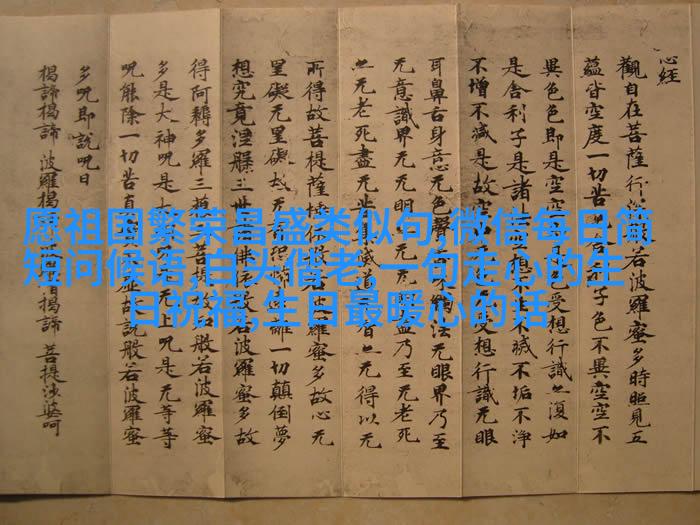 愿祖国繁荣昌盛类似句,微信每日简
短问候语,白头偕老,一句走心的生
日祝福,生日最暖心的话
心经
觀自在菩薩行若波羅蜜多時照見五
蘊皆空度一切苦子色不異空空不
異色色即是空空受想行識亦復如
是舍利子是諸不滅不垢不淨
不增不減是故空受想行識无眼
耳鼻舌身意无色法无眼界乃至
无意識界无无明盡乃至无老死
亦无老死盡无道亦无得以无
所得故菩提薩埵羅蜜多故心无
罣礙无罣礙故无離一切顛倒夢
想究竟涅槃三世若波羅蜜多故
得阿耨多羅三般若波羅蜜
多是大神咒是大无上咒是无等等
咒能除一切苦真故說般若波羅蜜
多咒即說咒曰
揭諦揭諦 波羅揭揭諦 菩提沙婆呵